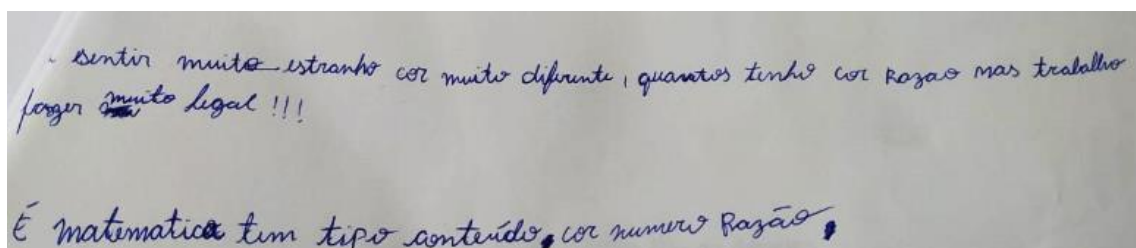 sentir muito estranho cor muito diferente, quantos tenho cor Razao nas trabalho
fazer muito legal !!!
É matematica tem tipo conteúdo, cor numero Razão,